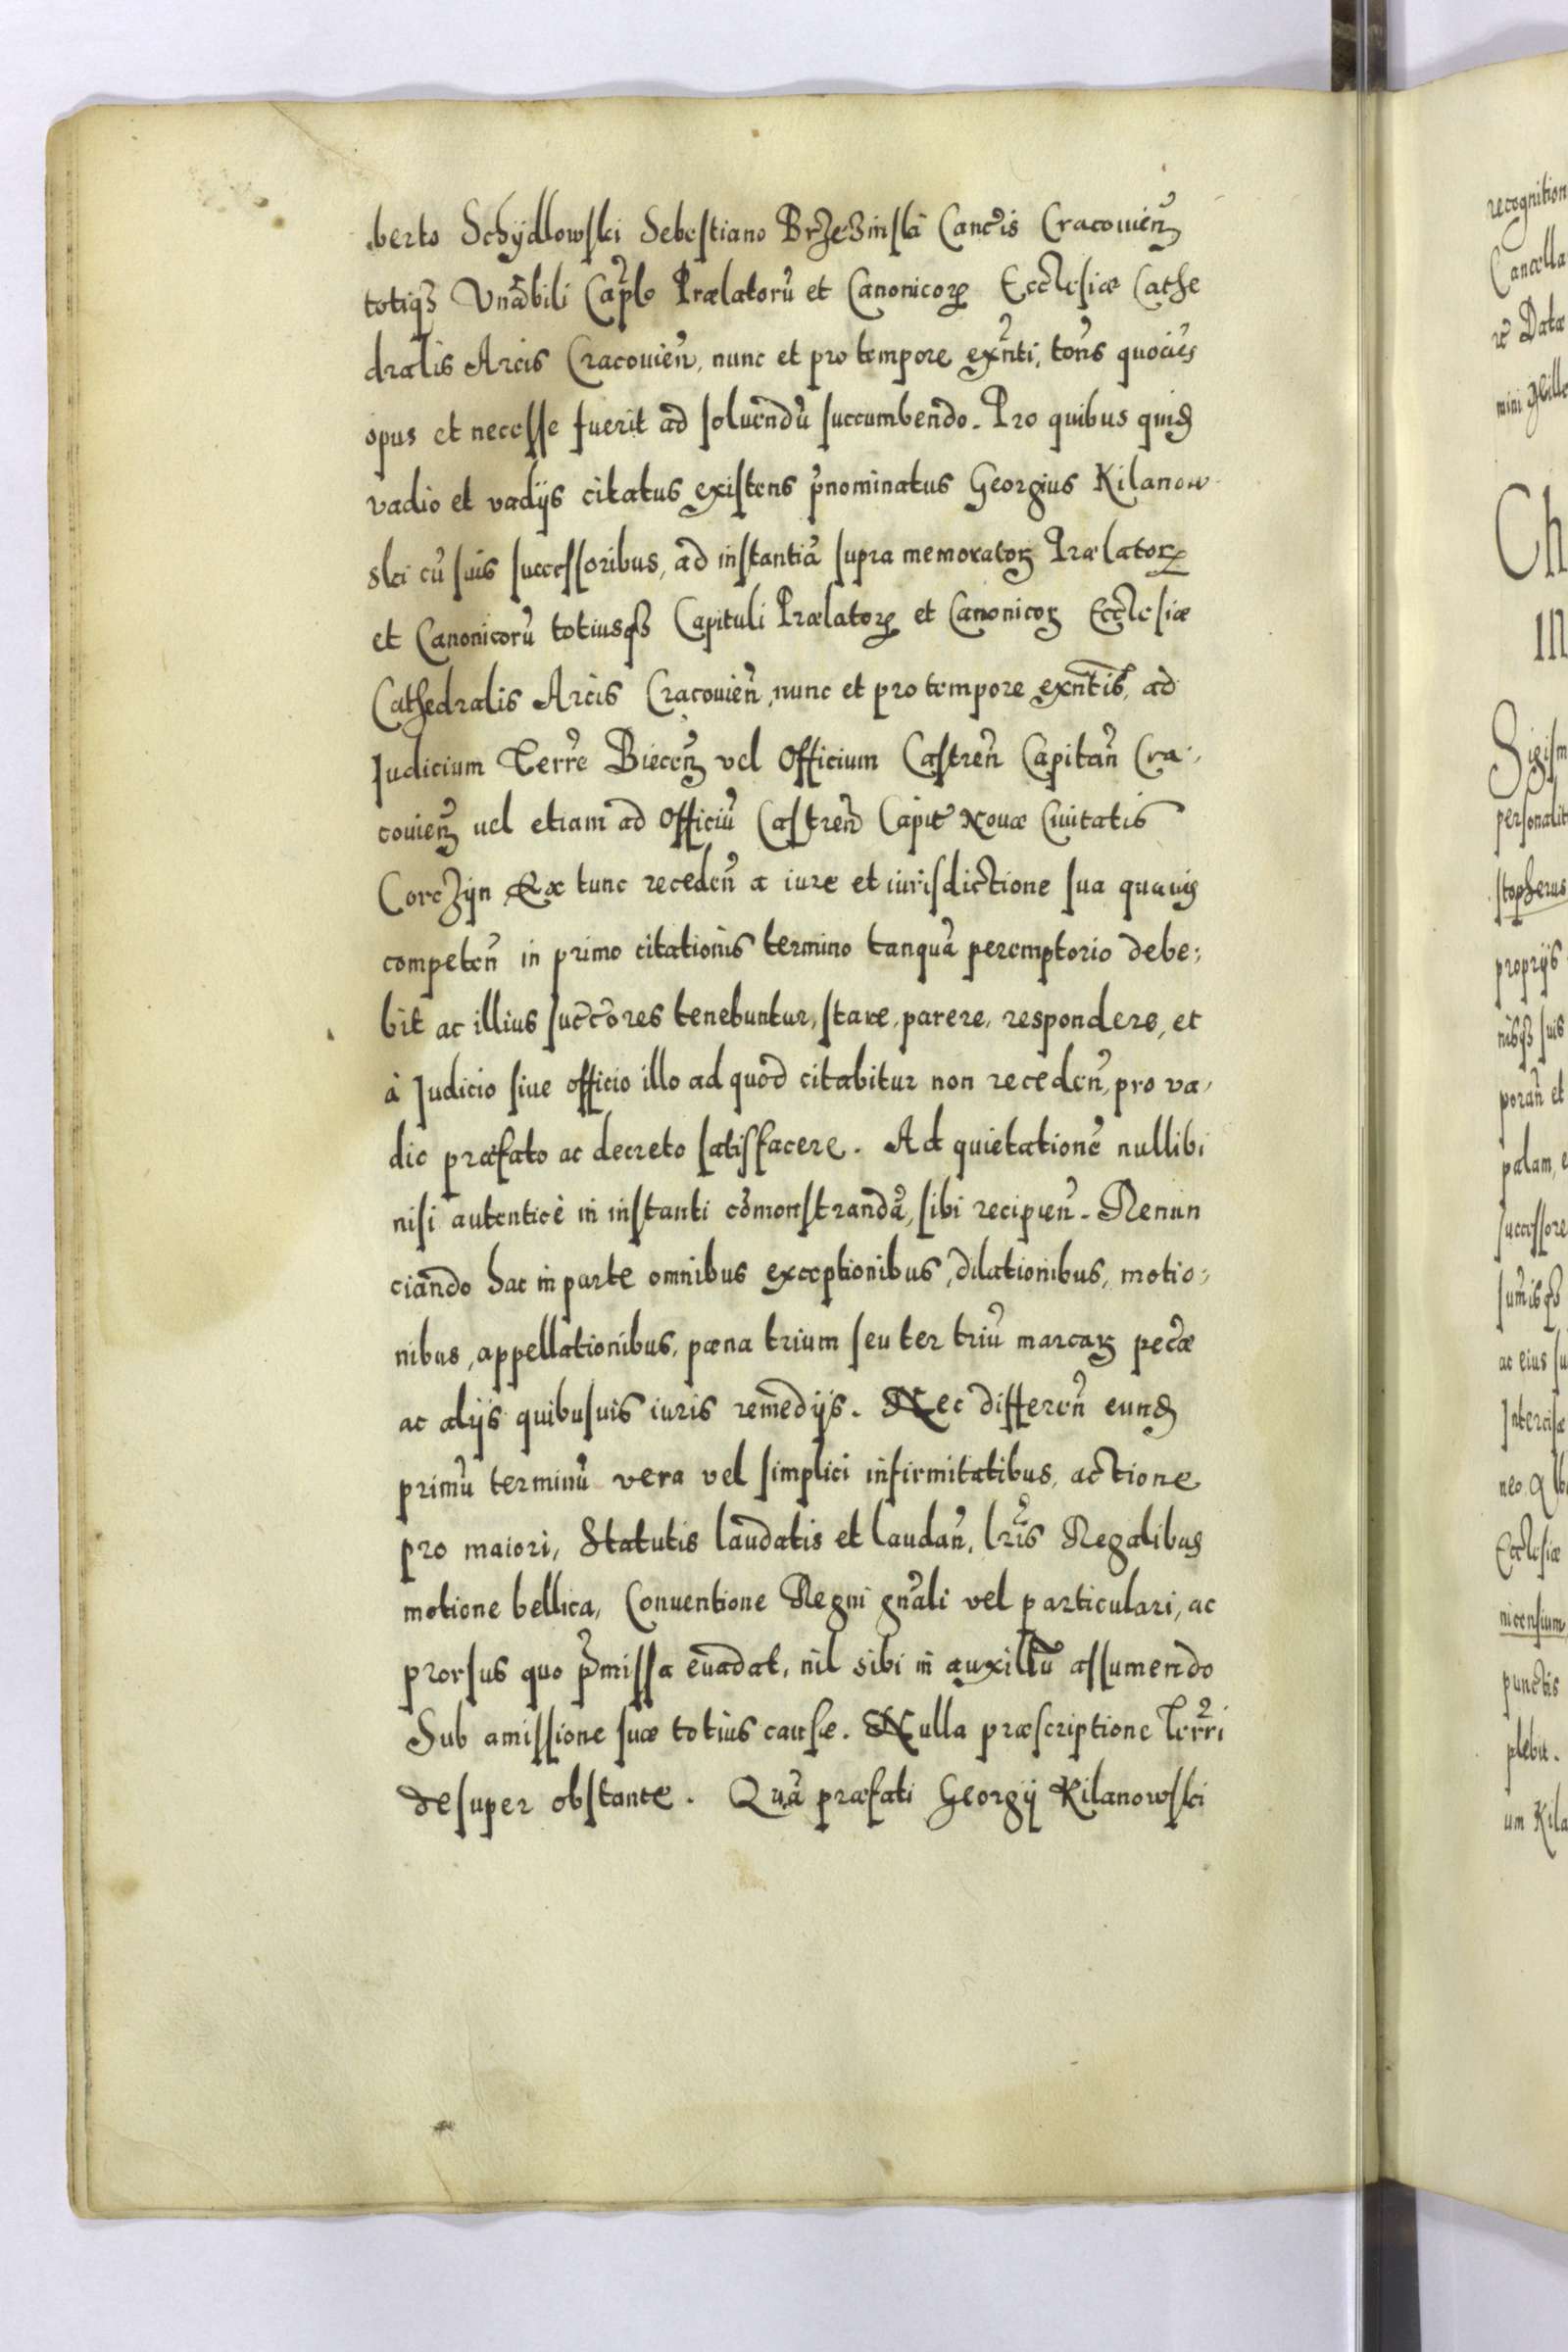 berto Schÿdlowski Sebestiano Brzezinski Canc̃is Cracouień
totiqȝ Vnãbili Cap̃lo Prælatorũ et Canonicoꝝ Ecc̃lesiæ Cathe
dralis Arcis Cracouień, nunc et pro tempore exñti, tõns quocies
opus et necesse fuerit ad soluendũ succumbendo. Pro quibus quidȝ
vadio et vadijs citatus existens p̃nominatus Georgius Kilanow
ski cũ suis successoribus, ad instantiã supra memoratoꝝ Prælatoꝝ
et Canonicorũ totiusqȝ Capituli Prælatoꝝ et Canonicoꝝ Ecc̃lesiæ
Cathedralis Arcis Cracouień, nunc et pro tempore exñtis, ad
Judicium Terrẽ Bieceń vel Officium Castreń Capitań Cra-
couień uel etiam ad Officiũ Castreń Capit̃ Nouæ Ciuitatis
Corczÿn Ex tunc recedeń a iure et iurisdictione sua quauis
competeń in primo citationis termino tanquã peremptorio debe:
bit ac illius succ̃ores tenebuntur, stare, parere, respondere, et
à Judicio siue officio illo ad quod citabitur non recedeń, pro va,
dio præfato ac decreto satisfacere. Ad quietationẽ nullibi
nisi autenticè in instanti cõmonstrandã, sibi recipień. Renun
ciando hac in parte omnibus exceptionibus, dilationibus, motio:
nibus, appellationibus, pœna trium seu ter triũ marcaꝝ pec̃æ
ac alijs quibusuis iuris remedijs. Nec differeń eundȝ
primũ terminũ vera vel simplici infirmitatibus, actione
pro maiori, Statutis laudatis et laudań, lr̃is Regalibus
motione bellica, Conuentione Regni gñali vel particulari, ac
prorsus quo p̃missa euadat, nil sibi in auxiliũ assumendo
Sub amissione suæ totius causæ. Nulla præscriptione Terr̃i
desuper obstante. Quã præfati Georgij Kilanowski
recognition
Cancella
rẽ Datæ
mini Mille
Ch
in
Sigism
personalit
stopherus
proprijs
nibqȝ suis
porań et
palam, e
successore
sum̃isqȝ
ac eius su
Intercisæ
neo Alb
Ecc̃lesiæ
nicensium,
punctis
plebit.
um Kila